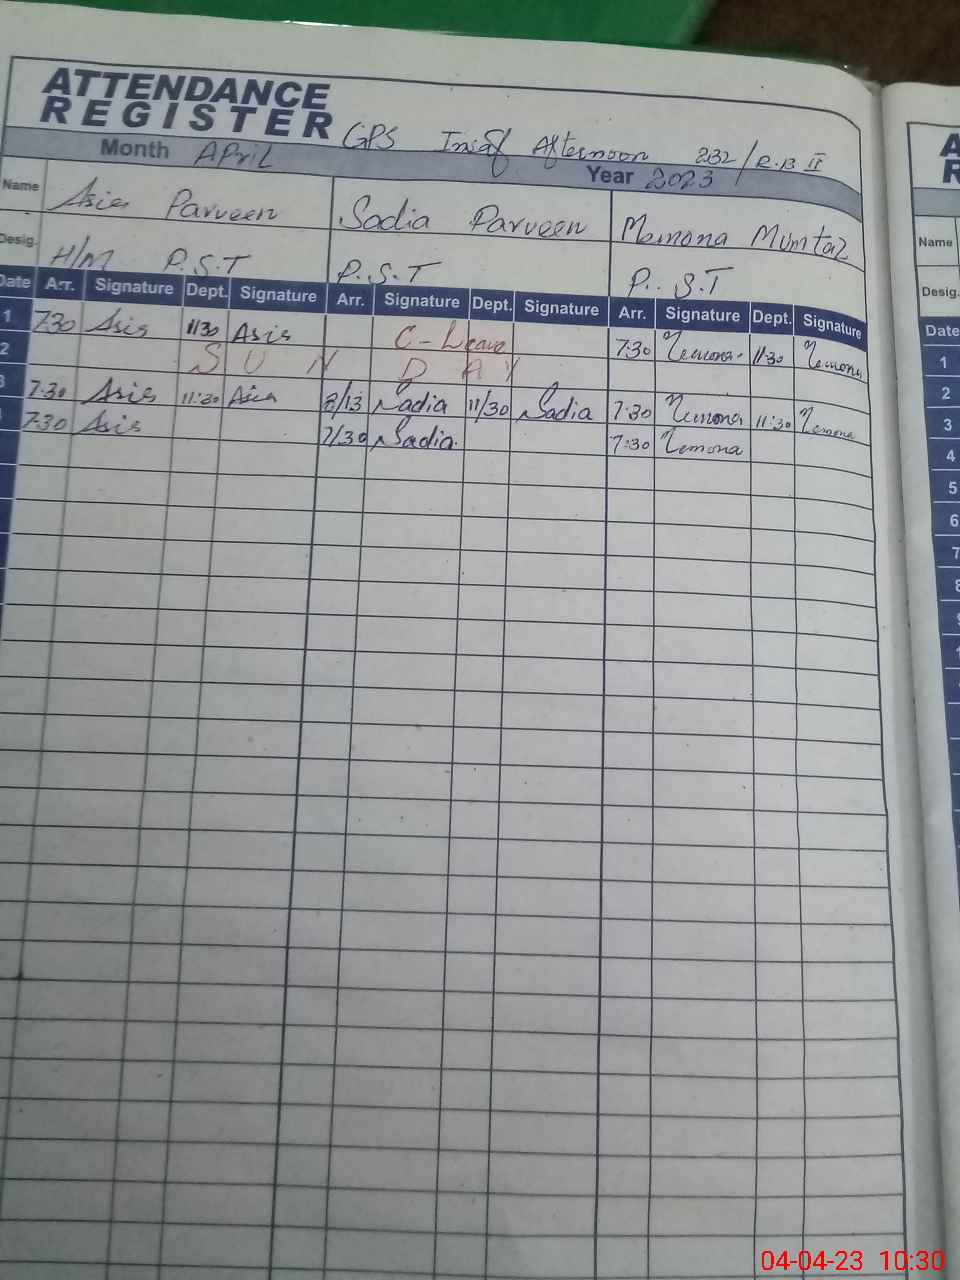 ATTENDANCE
REGISTER
GPS Inisf Afternoon 232/R.B II
Month April Year 2023
Name Asia Parveen Sadia Parveen Memona Mumtaz
Desig. H/M P.S.T P.S.T P.S.T
Date Arr. Signature Dept. Signature Arr. Signature Dept. Signature Arr. Signature Dept. Signature
1 7:30 Asia 11:30 Asia C-Leave 7:30 Memona 11:30 Memona
2 SUNDAY
3 7:30 Asia 11:30 Asia 8/13 Sadia 11/30 Sadia 7:30 Memona 11:30 Memona
7:30 Asia 7/30 Sadia 7:30 Memona
A
R
Name
Desig.
Date
1
2
3
4
5
6
7
8
04-04-23 10:30